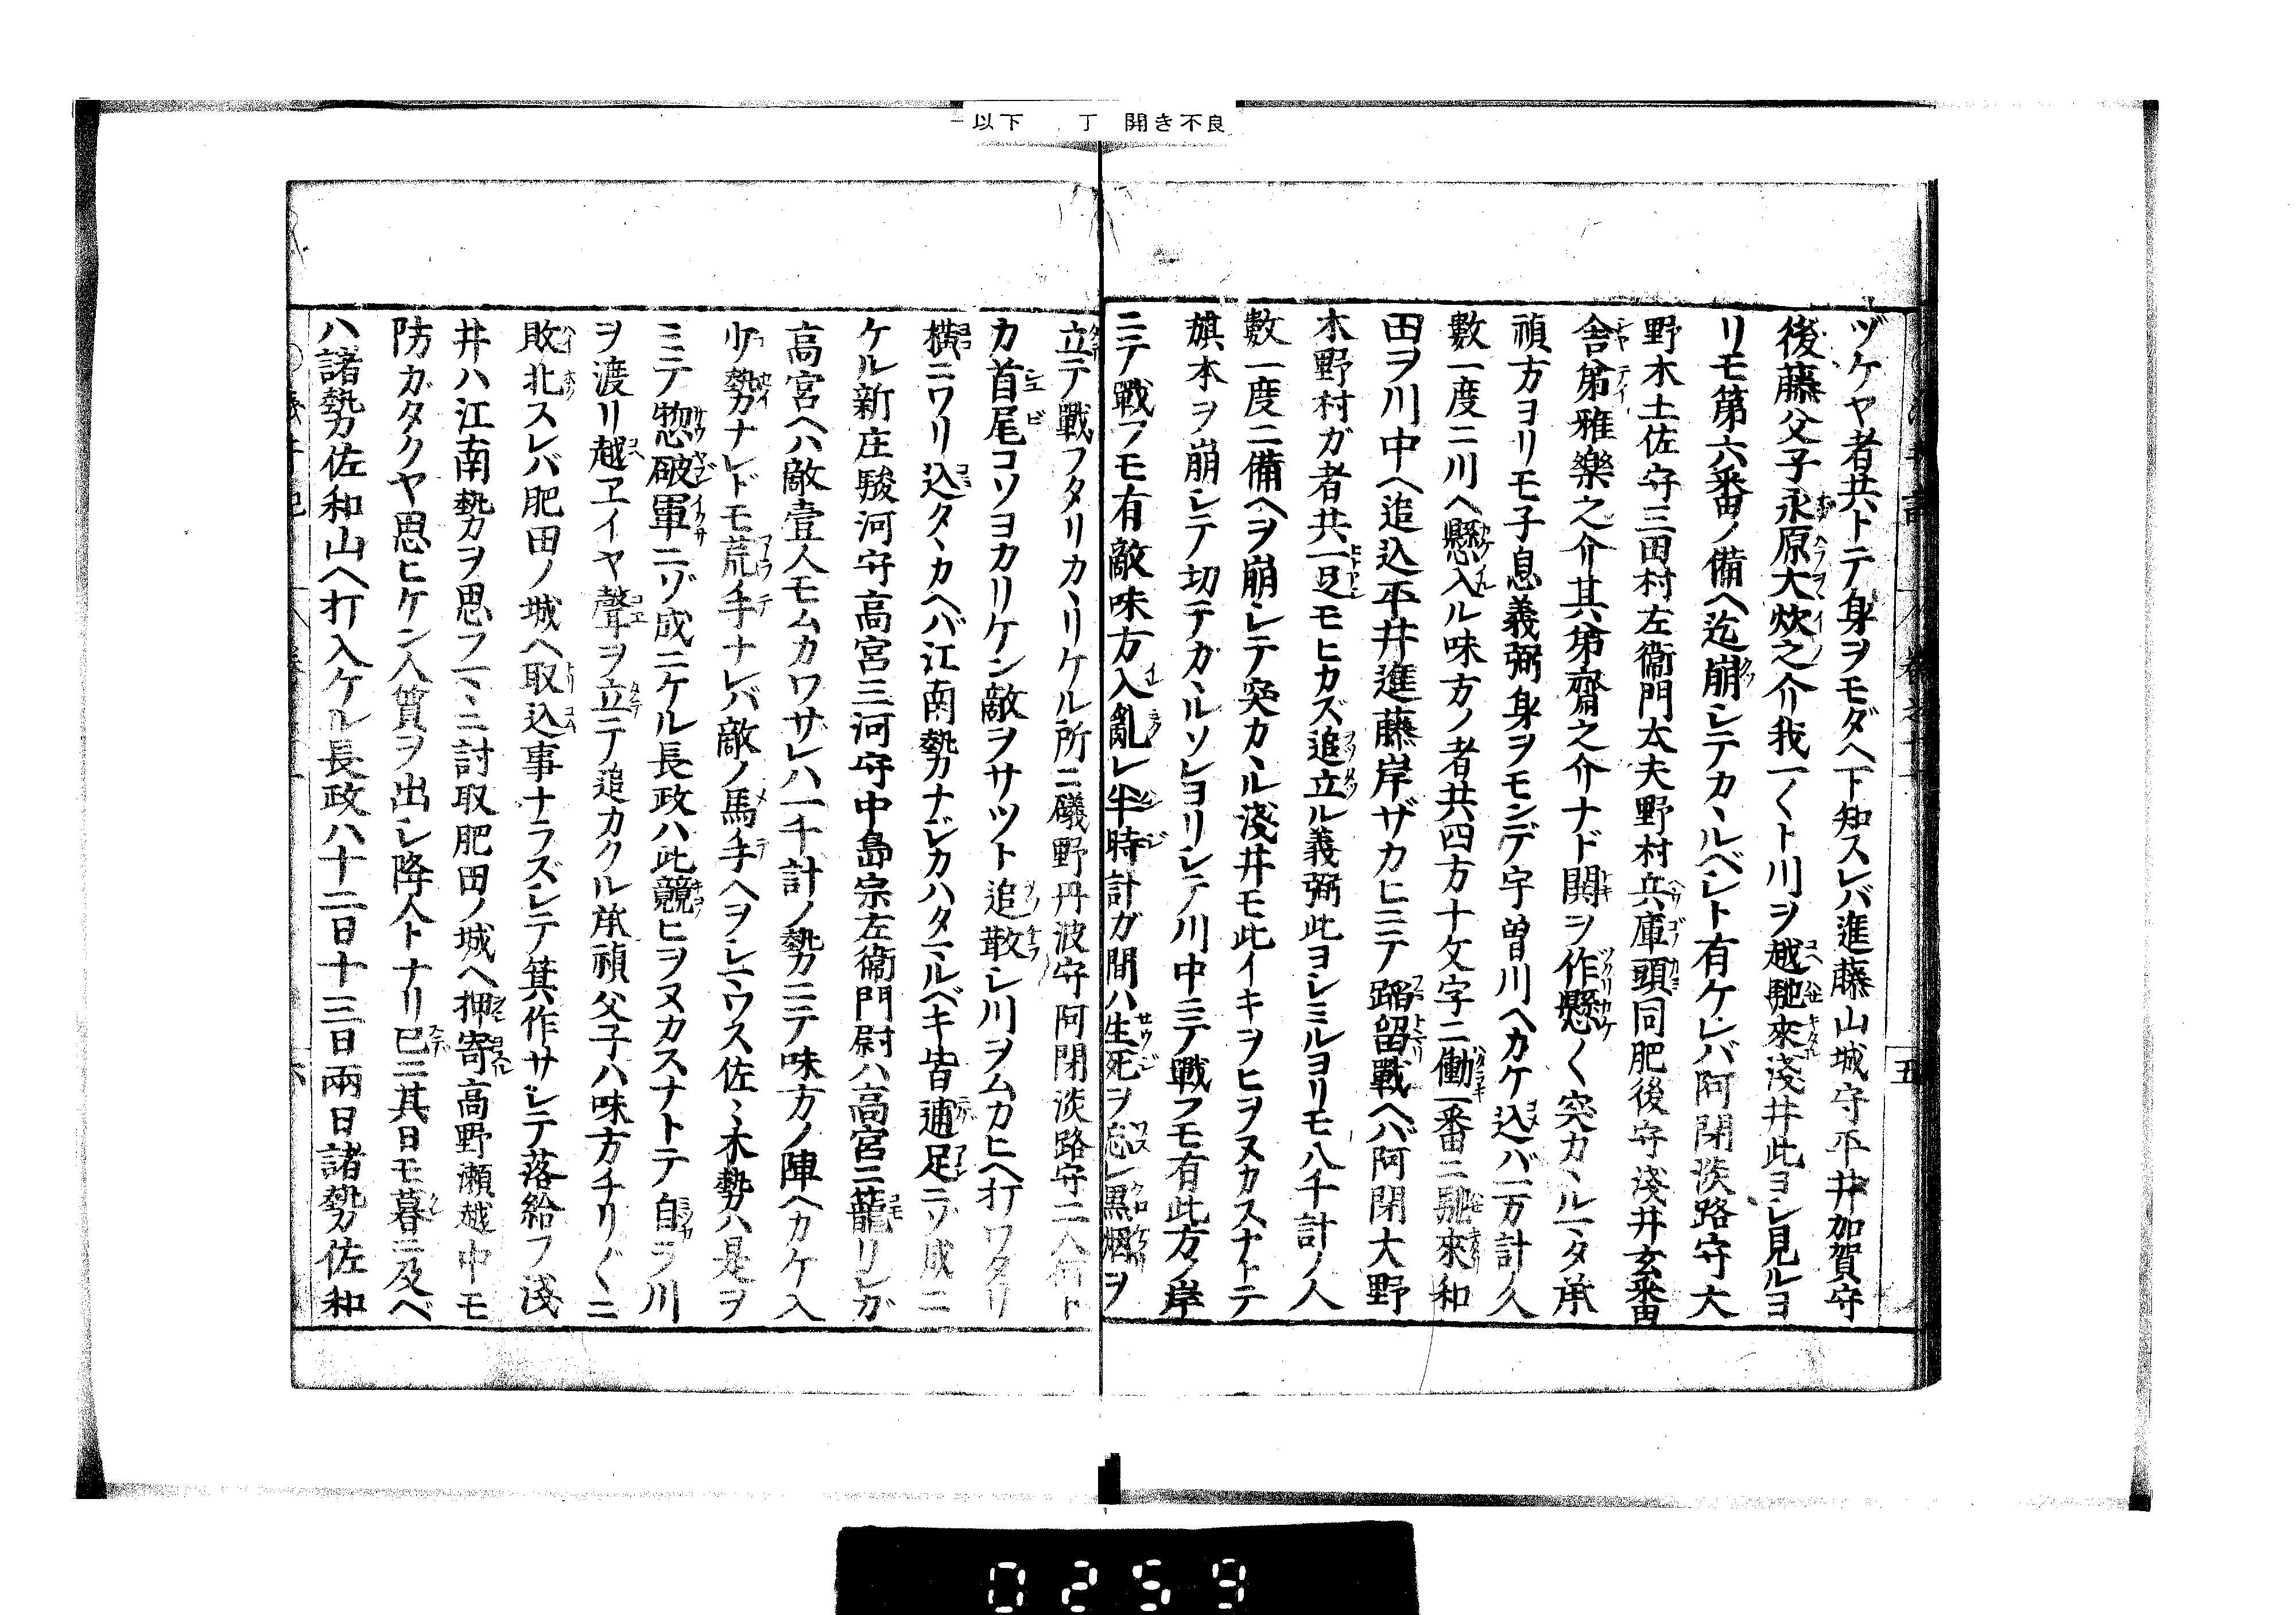 一以下　丁　開き不良
ヅケヤ者共トテ身ヲモダヘ下知スレバ進藤山城守平井加賀守
後藤父子永原大炊之介我一〱ト川ヲ越馳來淺井此ヨシ見ルヨ
リモ第六番ノ備ヘ迄崩シテカヽルベシト有ケレバ阿閉淡路守大
野木土佐守三田村左衞門太夫野村兵庫頭同肥後守淺井玄番
舎弟雅樂之介其弟齋之介ナド鬨ヲ作懸〱突カヽルマタ承
禎方ヨリモ子息義弼身ヲモンデ宇曽川ヘカケ込バ一万計ノ人
數一度ニ川ヘ懸入ル味方ノ者共四方十文字ニ働一番ニ馳來和
田ヲ川中ヘ追込平井進藤岸ザカヒニテ蹈留戰ヘバ阿閉大野
木野村ガ者共一足モヒカズ追立ル義弼此ヨシミルヨリモ八千計ノ人
數一度ニ備ヘヲ崩シテ突カヽル淺井モ此イキヲヒヲヌカスナトテ
旗本ヲ崩シテ切テカヽルソレヨリシテ川中ニテ戰フモ有此方ノ岸
ニテ戰フモ有敵味方入亂レ半時計ガ間ハ生死ヲ忘レ黒烟ヲ
立テ戰フタリカヽリケル所ニ礒野丹波守阿閉淡路守二人ト
カ首尾コソヨカリケン敵ヲサツト追散シ川ヲムカヒヘ打ワタリ
橫ニワリ込タヽカヘバ江南勢カナジカハタマルベキ皆逋足ニゾ成ニ
ケル新庄駿河守高宮三河守中島宗左衞門尉ハ高宮ニ籠リシガ
高宮ヘハ敵壹人モムカワサレハ一千計ノ勢ニテ味方ノ陣ヘカケ入
小勢ナレドモ荒手ナレバ敵ノ馬手ヘヲシマウス佐〻木勢ハ是ヲ
ミテ惣破軍ニゾ成ニケル長政ハ此競ヒヲヌカスナトテ自ラ川
ヲ渡リ越ヱイヤ聲ヲ立テ追カクル承禎父子ハ味方チリ〲ニ
敗北スレバ肥田ノ城ヘ取込事ナラズシテ箕作サシテ落給フ淺
井ハ江南勢ヲ思フマヽニ討取肥田ノ城ヘ押寄高野瀬越中モ
防ガタクヤ思ヒケン人質ヲ出シ降人トナリ已ニ其日モ暮ニ及ベ
ハ諸勢佐和山ヘ打入ケル長政八十二日十三日兩日諸勢佐和
0259